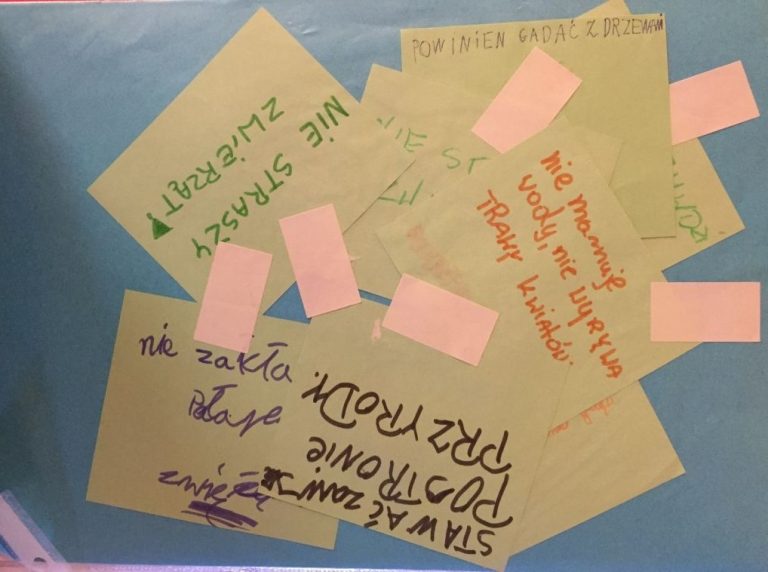 POWINIEN GADAĆ Z DRZEWAMI
NIE STRASZY
ZWIERZĄT!
NIE ST
nie marnuje
wody, nie wyrywa
TRAWY KWIATÓW
nie zakła
STAWAĆ ZAWSZE
PO STRONIE
PRZYRODY.